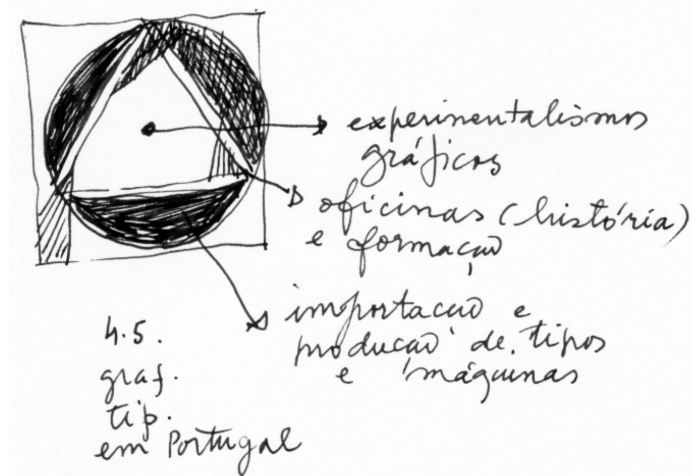 experimentalismos
gráficos
oficinas (história)
e formação
importação e
produção de tipos
e máquinas
4.5.
graf.
tip.
em Portugal